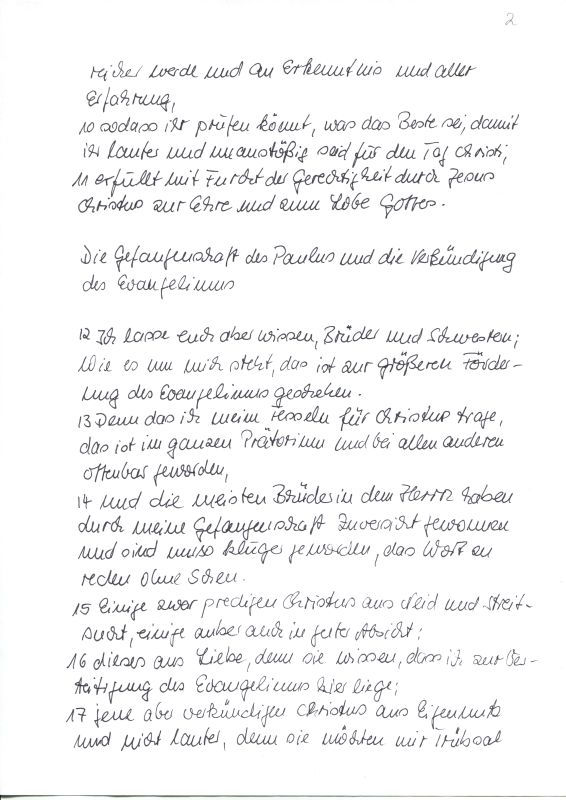 2
reicher werde und an Erkenntnis und aller
Erfahrung,
10 sodass ihr prüfen könnt, was das Beste sei, damit
ihr lauter und unanstößig seid für den Tag Christi,
11 erfüllt mit Furcht der Gerechtigkeit durch Jesus
Christus zur Ehre und zum Lobe Gottes.
Die Gefangenschaft des Paulus und die Verkündigung
des Evangeliums
12 Ich lasse euch aber wissen, Brüder und Schwestern;
Wie es um mich steht, das ist zur größeren Förder-
ung des Evangeliums geschehen.
13 Denn das ich meine Fesseln für Christus trage,
das ist im ganzen Prätorium und bei allen anderen
offenbar geworden,
14 und die meisten Brüder in dem Herrn haben
durch meine Gefangenschaft Zuversicht gewonnen
und sind umso kluger geworden, das Wort zu
reden ohne Scheu.
15 Einige zwar predigen Christus aus Neid und Streit-
sucht, einige aber auch in guter Absicht:
16 dieses aus Liebe, denn sie wissen, dass ich zur Ver-
teitigung des Evangeliums hier liege;
17 jene aber verkündigen Christus aus Eigennutz
und nicht lauter, denn sie möchten mir Trübsal